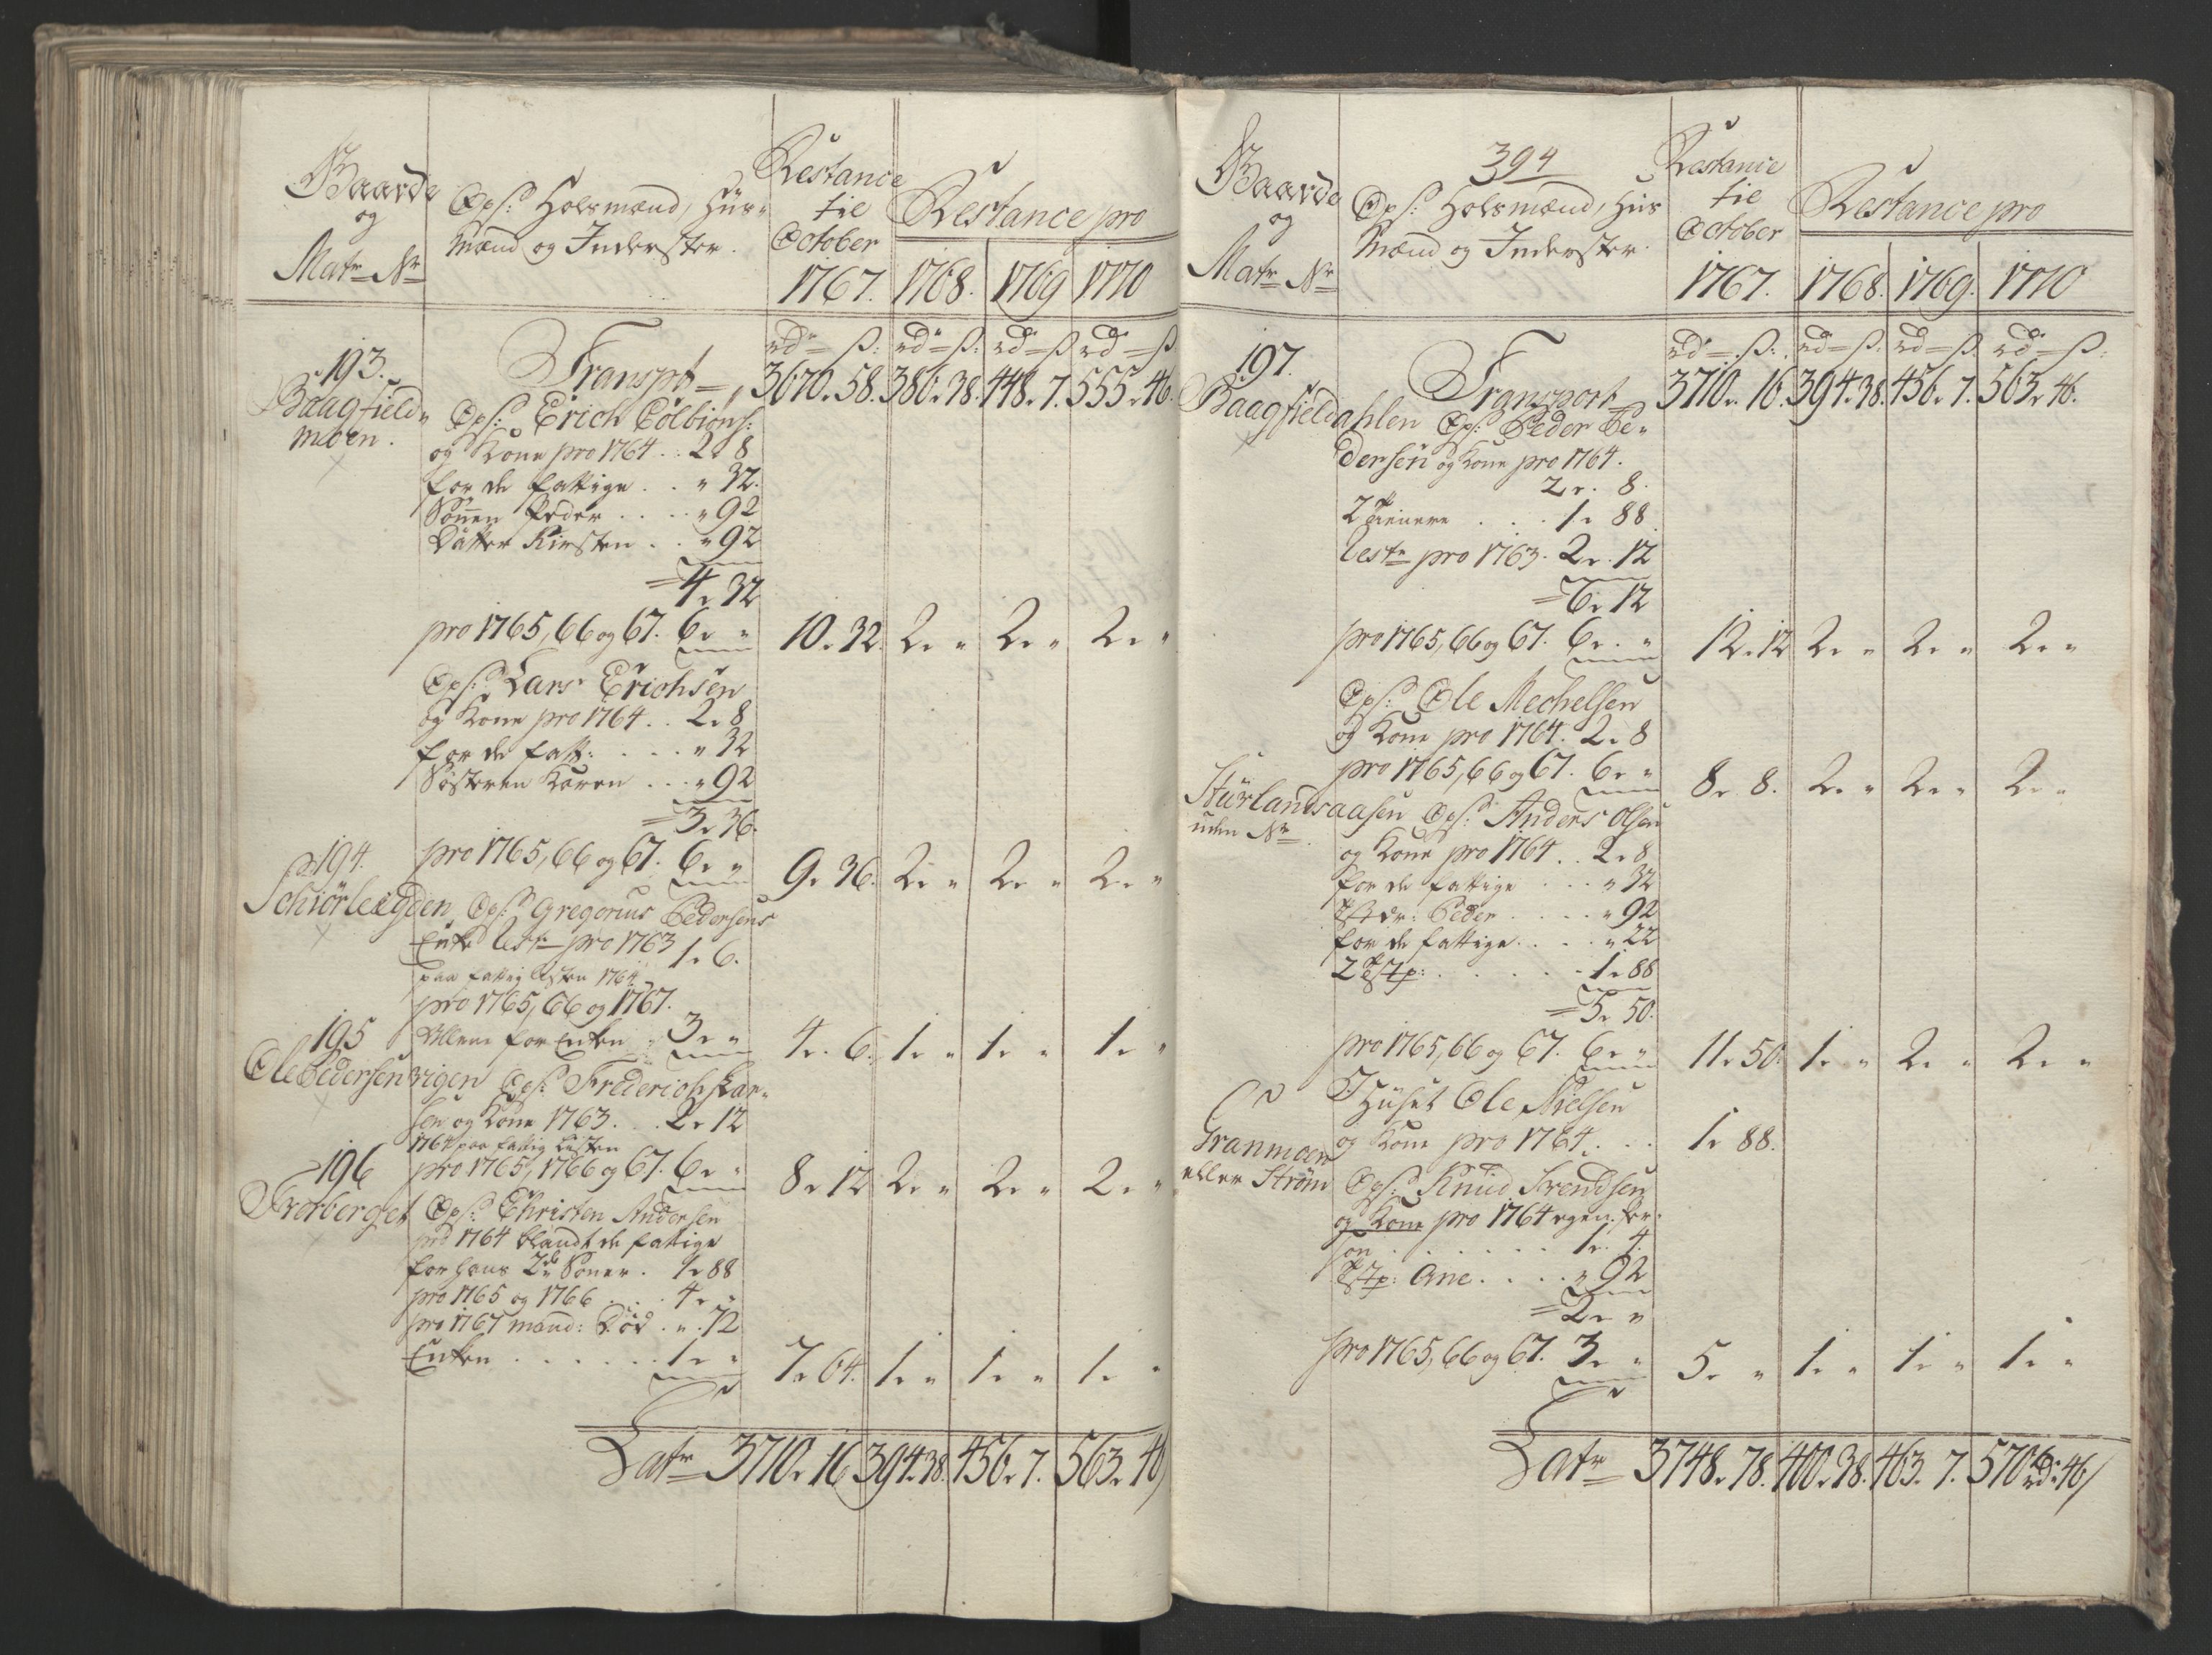 Gaarde
og
Matr. Nr.
Ops: Holsmænd, Huus-
Mænd og Inderster.
Restance
til
October
1767.
Restance pro
1768. 1769 1770
rdr - ß: rdr - ß: rdr - ß rdr - ß
193.
Baagfield-
moen.
Transpt 3670. 58. 386. 38. 448. 7. 555. 46.
Ops: Erich Colbions:
og Kone pro 1764. . 2. 8
for de fattige . . " 32.
Sönen Peder . . . . " 92
Datter Kirsten . . " 92
= 4. 32
pro 1765, 66 og 67. 6. " 10. 32. 2. " 2. " 2. "
Ops: Lars Erichsen
og Kone pro 1764. . 2. 8
for de fatt: . . . . " 32
Söstern Karen . . . " 92
= 3. 36.
pro 1765, 66 og 67. 6. " 9. 36. 2. " 2. " 2. "
194.
Schiörleigden, Ops: Gregorius Pedersens
Enke Rest pro 1763 1. 6.
paa fattig listen 1764
pro 1765, 66 og 1767.
Allene for Enken . 3. " 4. 6. 1. " 1. " 1. "
195
Ole Pedersenvigen Ops: Friderich Lar-
sen og Kone 1763. . . 2. 12
1764 paa fattig Listen
pro 1765, 1766 og 67. 6. " 8. 12 2. " 2. " 2. "
196
Troberget Ops: Christen Andersen
pro 1764 blandt de fattige
for hans 2de Söner . 1. 88
pro 1765 og 1766 . . . 4. "
pro 1767 mand: Död . ". 72
Enken . . . . . . . 1. " 7. 64. 1. " 1. " 1. "
Latr 3710. 16 394. 38. 456. 7. 563. 46
Gaarde
og
Matr. Nr.
394
Ops: Holsmænd, Huus
Mænd og Inderster.
Restance
til
October
1767.
Restance pro
1768. 1769. 1770
rdr - ß: rdr - ß. rdr - ß. rdr - ß:
197.
Transport 3710. 16. 394. 38. 456. 7. 563. 46.
Baagfieldahlen Ops: Peder Pe-
dersen og Kone pro 1764.
2. 8.
2 Tienere . . . 1. 88
Rest pro 1763. 2. 12
= 6. 12
pro 1765, 66 og 67. 6. " 12. 12 2. " 2. " 2. "
Ops: Ole Mechelsen
og Kone pro 1764. 2. 8
pro 1765, 66 og 67. 6. " 8. 8. 2. " 2. " 2. "
Stürlandsaasen Ops: Anders Olsen
uden Nr.
og Kone pro 1764. . 2. 8
for de fattige . . . " 32
Tstdr: Peder . . . . " 92
for de fattige . . . . " 22
2 Tstp: . . . . . . 1. 88
= 5. 50.
pro 1765, 66 og 67. 6. " 11. 50. 1. " 2. " 2. "
I Huset Ole Nielsen
og Kone pro 1764. . . 1. 88.
Granmoen
eller Ström Ops: Knud Svendsen
og Kone pro 1764 egen Per-
son . . . . . . . 1. 4.
Tstp: Ane . . . . " 92
= 2. "
pro 1765, 66 og 67. 3. " 5. " 1. " 1. " 1. "
Latr 3748. 78. 400. 38. 463. 7. 570 rdr. 46